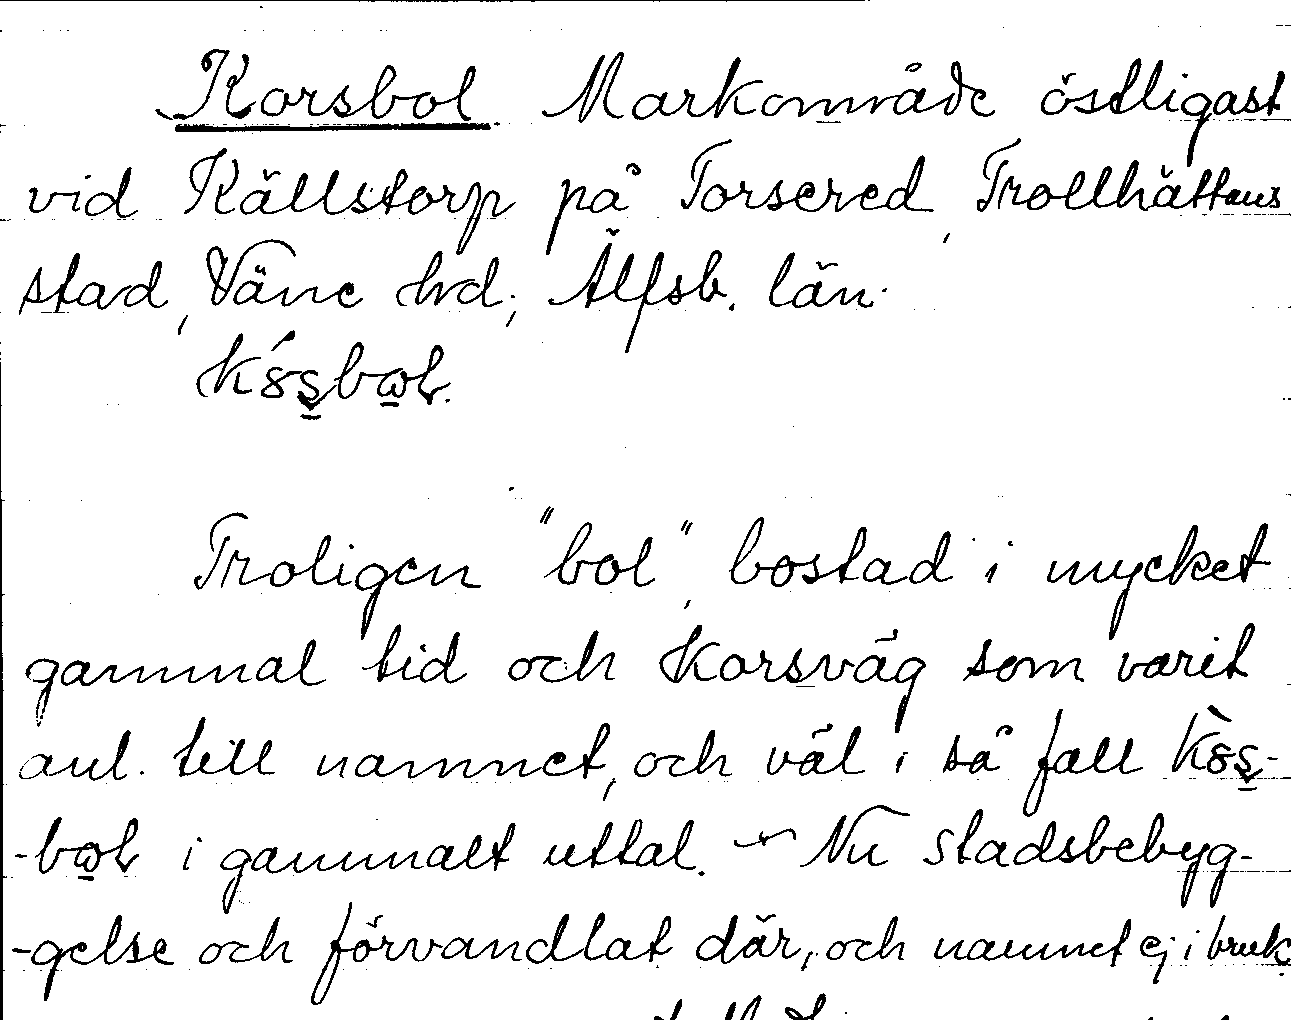 Korsbol Markområde östligast
vid Källstorp på Torsered, Trollhättans
stad, Väne hd, Älfsb. län.
Troligen "bol", bostad i mycket
gammal tid och Korsväg som varit
anl. till namnet, och väl i så fall
i gammalt uttal. - Nu stadsbebyg-
-gelse och förvandlat där, och namnet ej i bruk